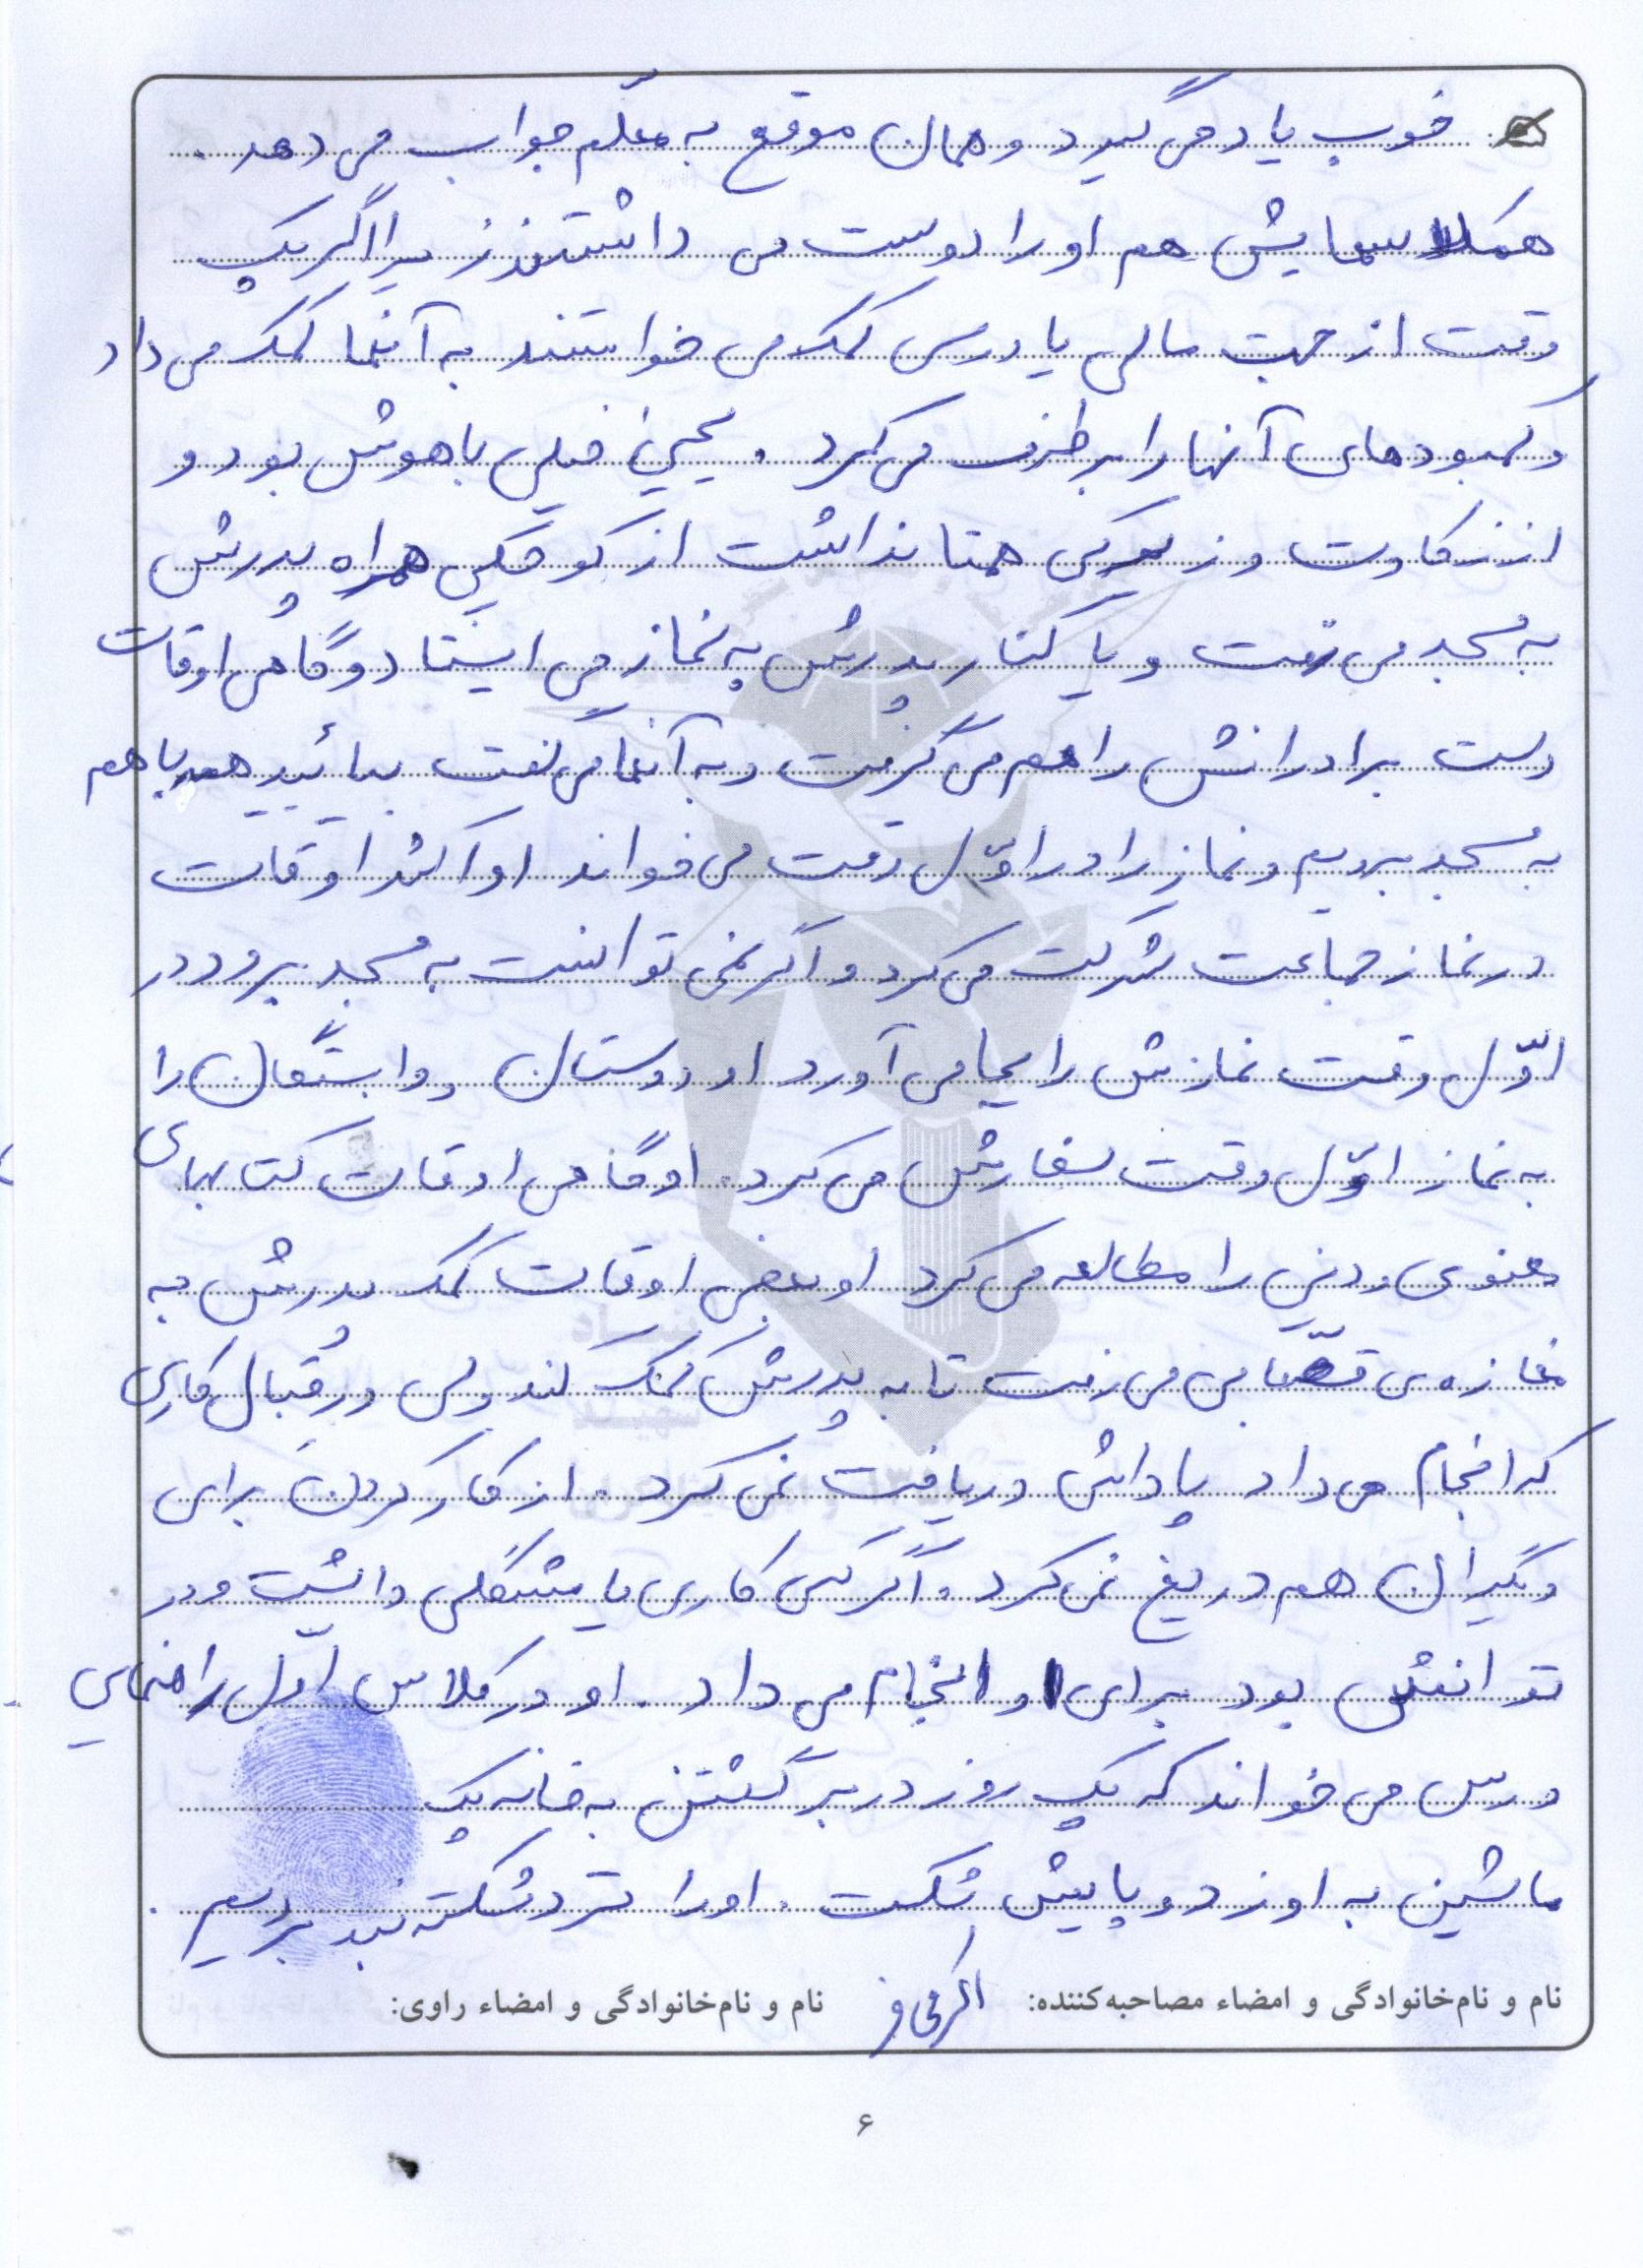 خوب یاد می گیرد و همان موقع به معلّم جواب می دهد.
همکلاسیهایش هم او را دوست می داشتند زیرا اگر یک
وقت از جهت مالی یا درسی کمک می خواستند به آنها کمک می داد
و کمبودهای آنها را برطرف می کرد. یحیی خیلی باهوش بود و
از زکاوت و زیرکی همتا نداشت از کوچکی همراه پدرش
به مسجد می رفت و یا کنار پدرش به نماز می ایستاد و گاهی اوقات
دست برادرانش را هم می گرفت و به آنها می گفت بیائید همه با هم
به مسجد برویم و نماز را در اوّل وقت می خواند او اکثر اوقات
در نماز جماعت شرکت می کرد و اگر نمی توانست به مسجد برود در
اوّل وقت نمازش را بجا می آورد او دوستان و وابستگان را
به نماز اوّل وقت سفارش می کرد. او گاهی اوقات کتابهای
معنوی و دینی را مطالعه می کرد او بعضی اوقات کمک پدرش به
مغازه ی قصّابی می رفت تا به پدرش کمک کند ولی در قبال کاری
که انجام می داد پاداش دریافت نمی کرد. از کار کردن برای
دیگران هم دریغ نمی کرد. اگر کسی کاری یا مشکلی داشت و در
توانش بود برای او انجام می داد. او در کلاس اول راهنمایی
درس می خواند که یک روز در برگشتن به خانه یک
ماشین به او زد و پایش شکست. او را نزد شکسته بند بردیم.
نام و نام‌خانوادگی و امضاء مصاحبه‌کننده: نام و نام‌خانوادگی و امضاء راوی:
۶